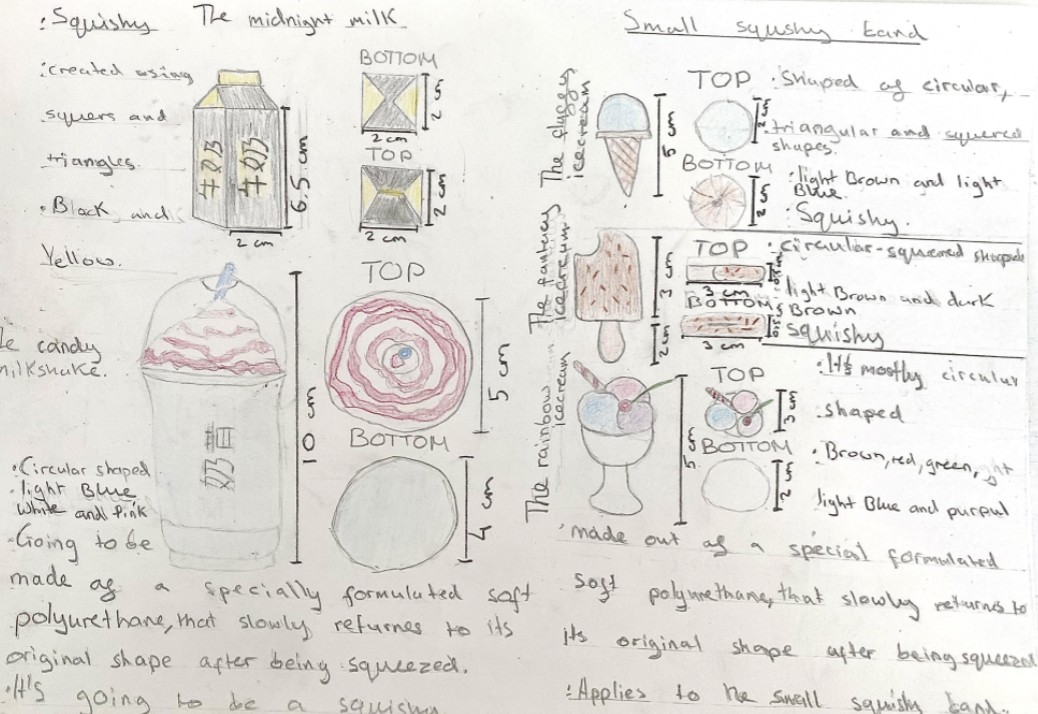 :Squishy The midnight milk
:created using
squers and
triangles.
• Black and
Yellow.
牛奶
牛奶
6.5 cm
2 cm
BOTTOM
2 cm
2 cm
TOP
2 cm
2 cm
candy
milkshake.
10 cm
TOP
5 cm
BOTTOM
4 cm
:Circular shaped
• light Blue
White and Pink
•Going to be
made of a specially formulated soft
polyurethane, that slowly returnes to its
original shape after being squeezed.
•It's going to be a squishy
Small squshy band
The
icecream
5 cm
TOP
2 cm
BOTTOM
2 cm
:Shaped of circular,
triangular and squered
shapes.
• light Brown and light
Blue.
• Squishy.
The fantacy
icecream
3 cm
2 cm
TOP
3 cm
BOTTOM
3 cm
• circular-squered shapede
• light Brown and dark
Brown
• squishy
The rainbow
icecream
TOP
3 cm
BOTTOM
2 cm
• It's mostly circular
shaped
• Brown, red, green,
light Blue and purpul
• made out of a special formulated
soft polyurethane, that slowly returnes to
its original shape after being squeezed
:Applies to the small squishy band.